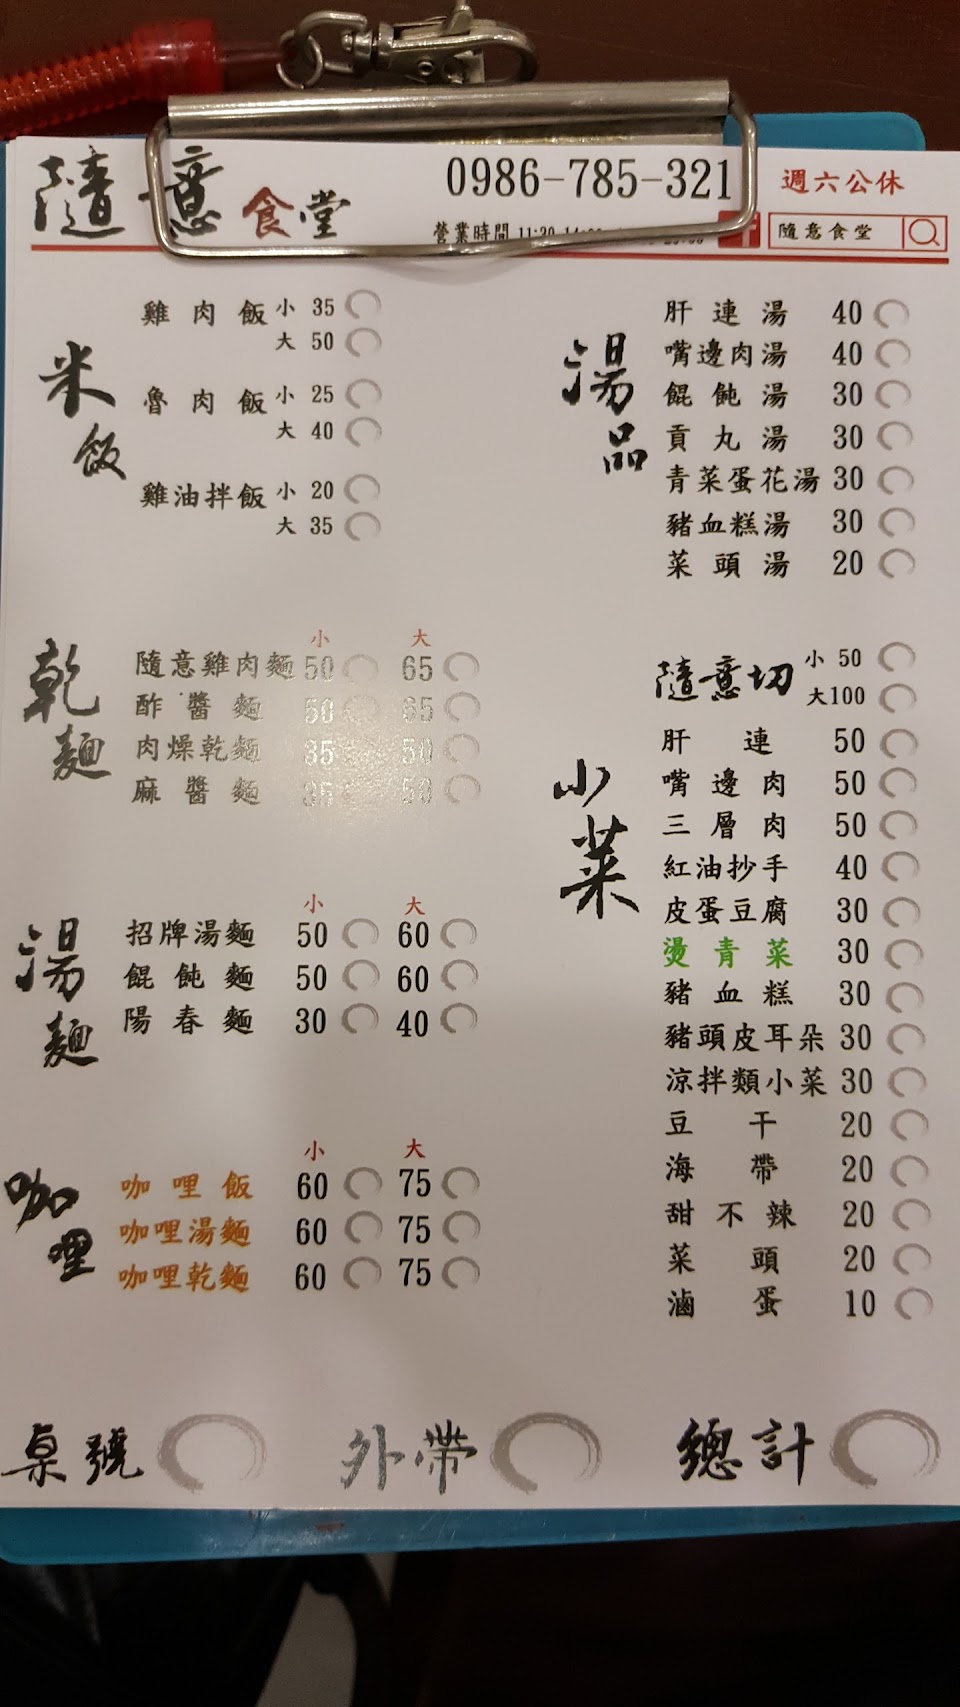 隨意食堂
0986-785-321
週六公休
營業時間 11:30
隨意食堂
米飯
雞肉飯 小 35
大 50
魯肉飯 小 25
大 40
雞油拌飯 小 20
大 35
乾麵
小 大
隨意雞肉麵 50 65
酢醬麵 50 65
肉燥乾麵 35 50
麻醬麵 35 50
湯麵
小 大
招牌湯麵 50 60
餛飩麵 50 60
陽春麵 30 40
咖哩
小 大
咖哩飯 60 75
咖哩湯麵 60 75
咖哩乾麵 60 75
湯品
肝連湯 40
嘴邊肉湯 40
餛飩湯 30
貢丸湯 30
青菜蛋花湯 30
豬血糕湯 30
菜頭湯 20
小菜
隨意切 小 50
大100
肝連 50
嘴邊肉 50
三層肉 50
紅油抄手 40
皮蛋豆腐 30
燙青菜 30
豬血糕 30
豬頭皮耳朵 30
涼拌類小菜 30
豆干 20
海帶 20
甜不辣 20
菜頭 20
滷蛋 10
桌號 外帶 總計